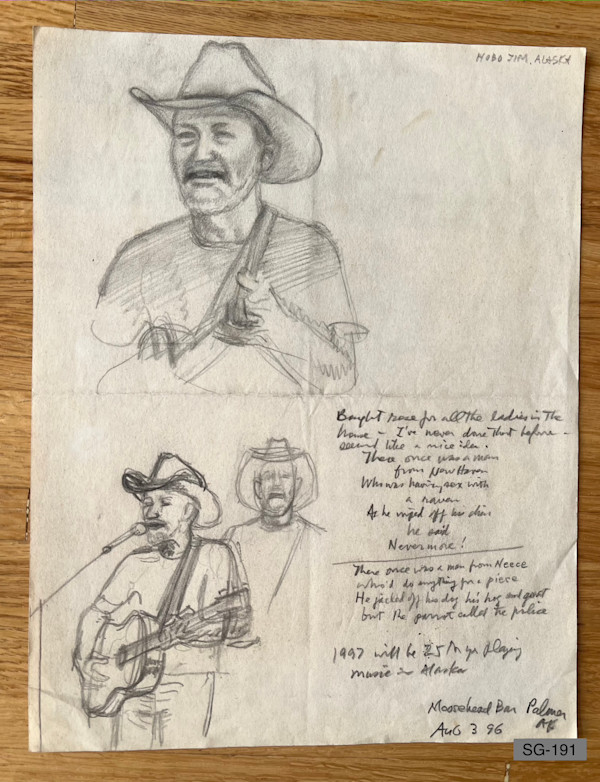 HOBO JIM, ALASKA
Bought for all the ladies in the
house - I've never done that before -
seemed like a nice idea.
There once was a man
from New Haven
Who was having sex with
a raven
As he wiped off his
he said
Nevermore!
There once was a man from Neece
who'd do anything for a piece
He jacked off his dog his hog and goat
but the parrot called the police
1997 will be 25th yr playing
music in Alaska
Moosehead Bar Palmer
AK
Aug 3 96
SG-191